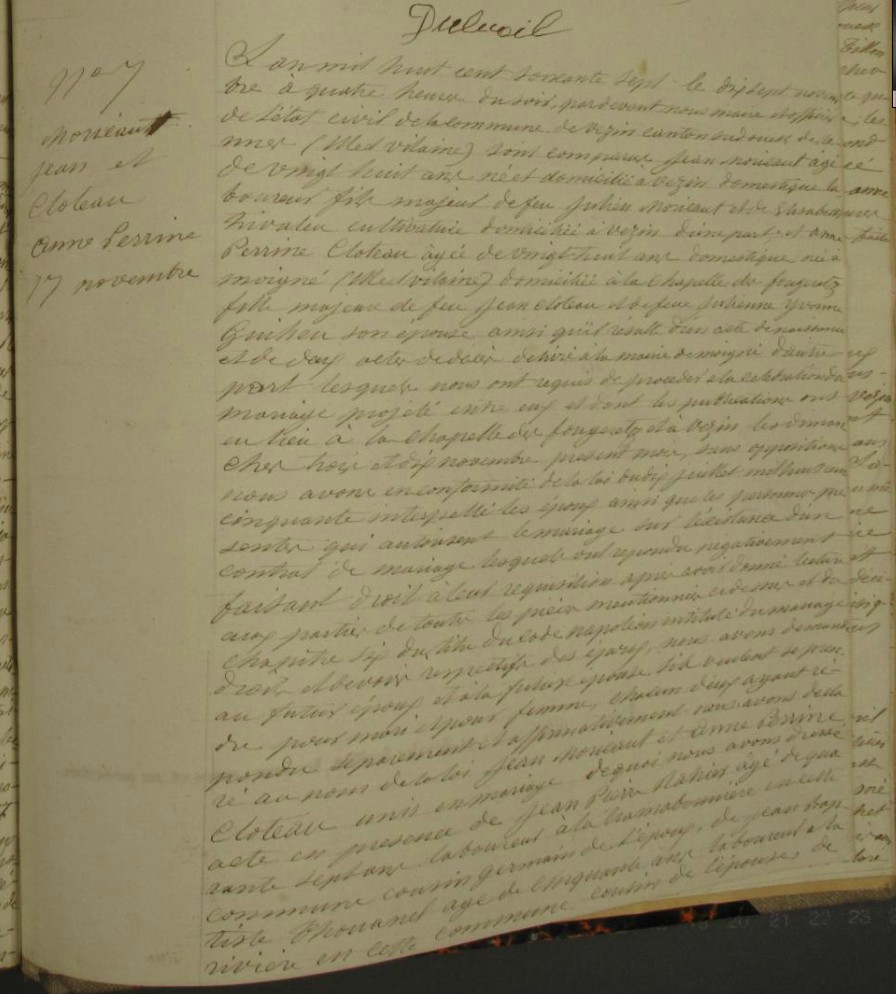 Duluoil
No 7
Moricault
Jean et
Cloteau
Anne Perrine
17 novembre
L'an mil huit cent soixante sept le dix sept novem
bre à quatre heures du soir, par devant nous maire et officier
de l'état civil de la commune de Vezin canton sud ouest de
nnes (Ille et vilaine) sont comparus Jean Moricaut agé
de vingt huit ans né et domicilié à Vezin domestique la
boureur fils majeur de feu Julien Moricaut et de
cultivatrice domiciliée à Vezin d'une part, et Anne
Perrine Cloteau âgée de vingt huit ans domestique née à
moigné (Ille et Vilaine) domiciliée à la Chapelle des fougeretz
fille majeure de feu Jean Cloteau et de feue Julienne Yvonne
son épouse ainsi qu'il résulte d'un acte de naissance
et de deux actes de décès délivré à la mairie de moigné d'autre
part lesquels nous ont requis de procéder à la célébration du
mariage projeté entre eux et dont les publications ont
eu lieu à la Chapelle des fougeretz et à Vezin les diman
ches trois et dix novembre présent mois, sans opposition
nous avons en conformité de la loi du dix juillet mil huit cent
cinquante interpellé les époux ainsi que les personnes pré
sentes qui autorisent le mariage sur l'existence d'un
contrat de mariage lesquels ont repondu négativement
faisant droit à leur requisition après avoir donné lecture
aux parties de toutes les pièces mentionnées ci dessus et du
chapitre six du titre du Code napoléon intitulé du mariage
droits et devoirs respectifs des époux, nous avons demandé
au futur époux et à la future épouse s'ils veulent se pren
dre pour mari et pour femme, chacun d'eux ayant ré
pondu séparément et affirmativement nous avons décla
ré au nom de la loi Jean Moricaut et Anne Perrine
Cloteau unis en mariage de quoi nous avons dressé
acte en présence de Jean Pierre âgé de qua
rante sept ans laboureur à la en cette
commune cousin germain de l'époux, de Jean Bap
tiste Thouanel agé de cinquante ans laboureur à la
rivière en cette commune cousin de l'épouse, de